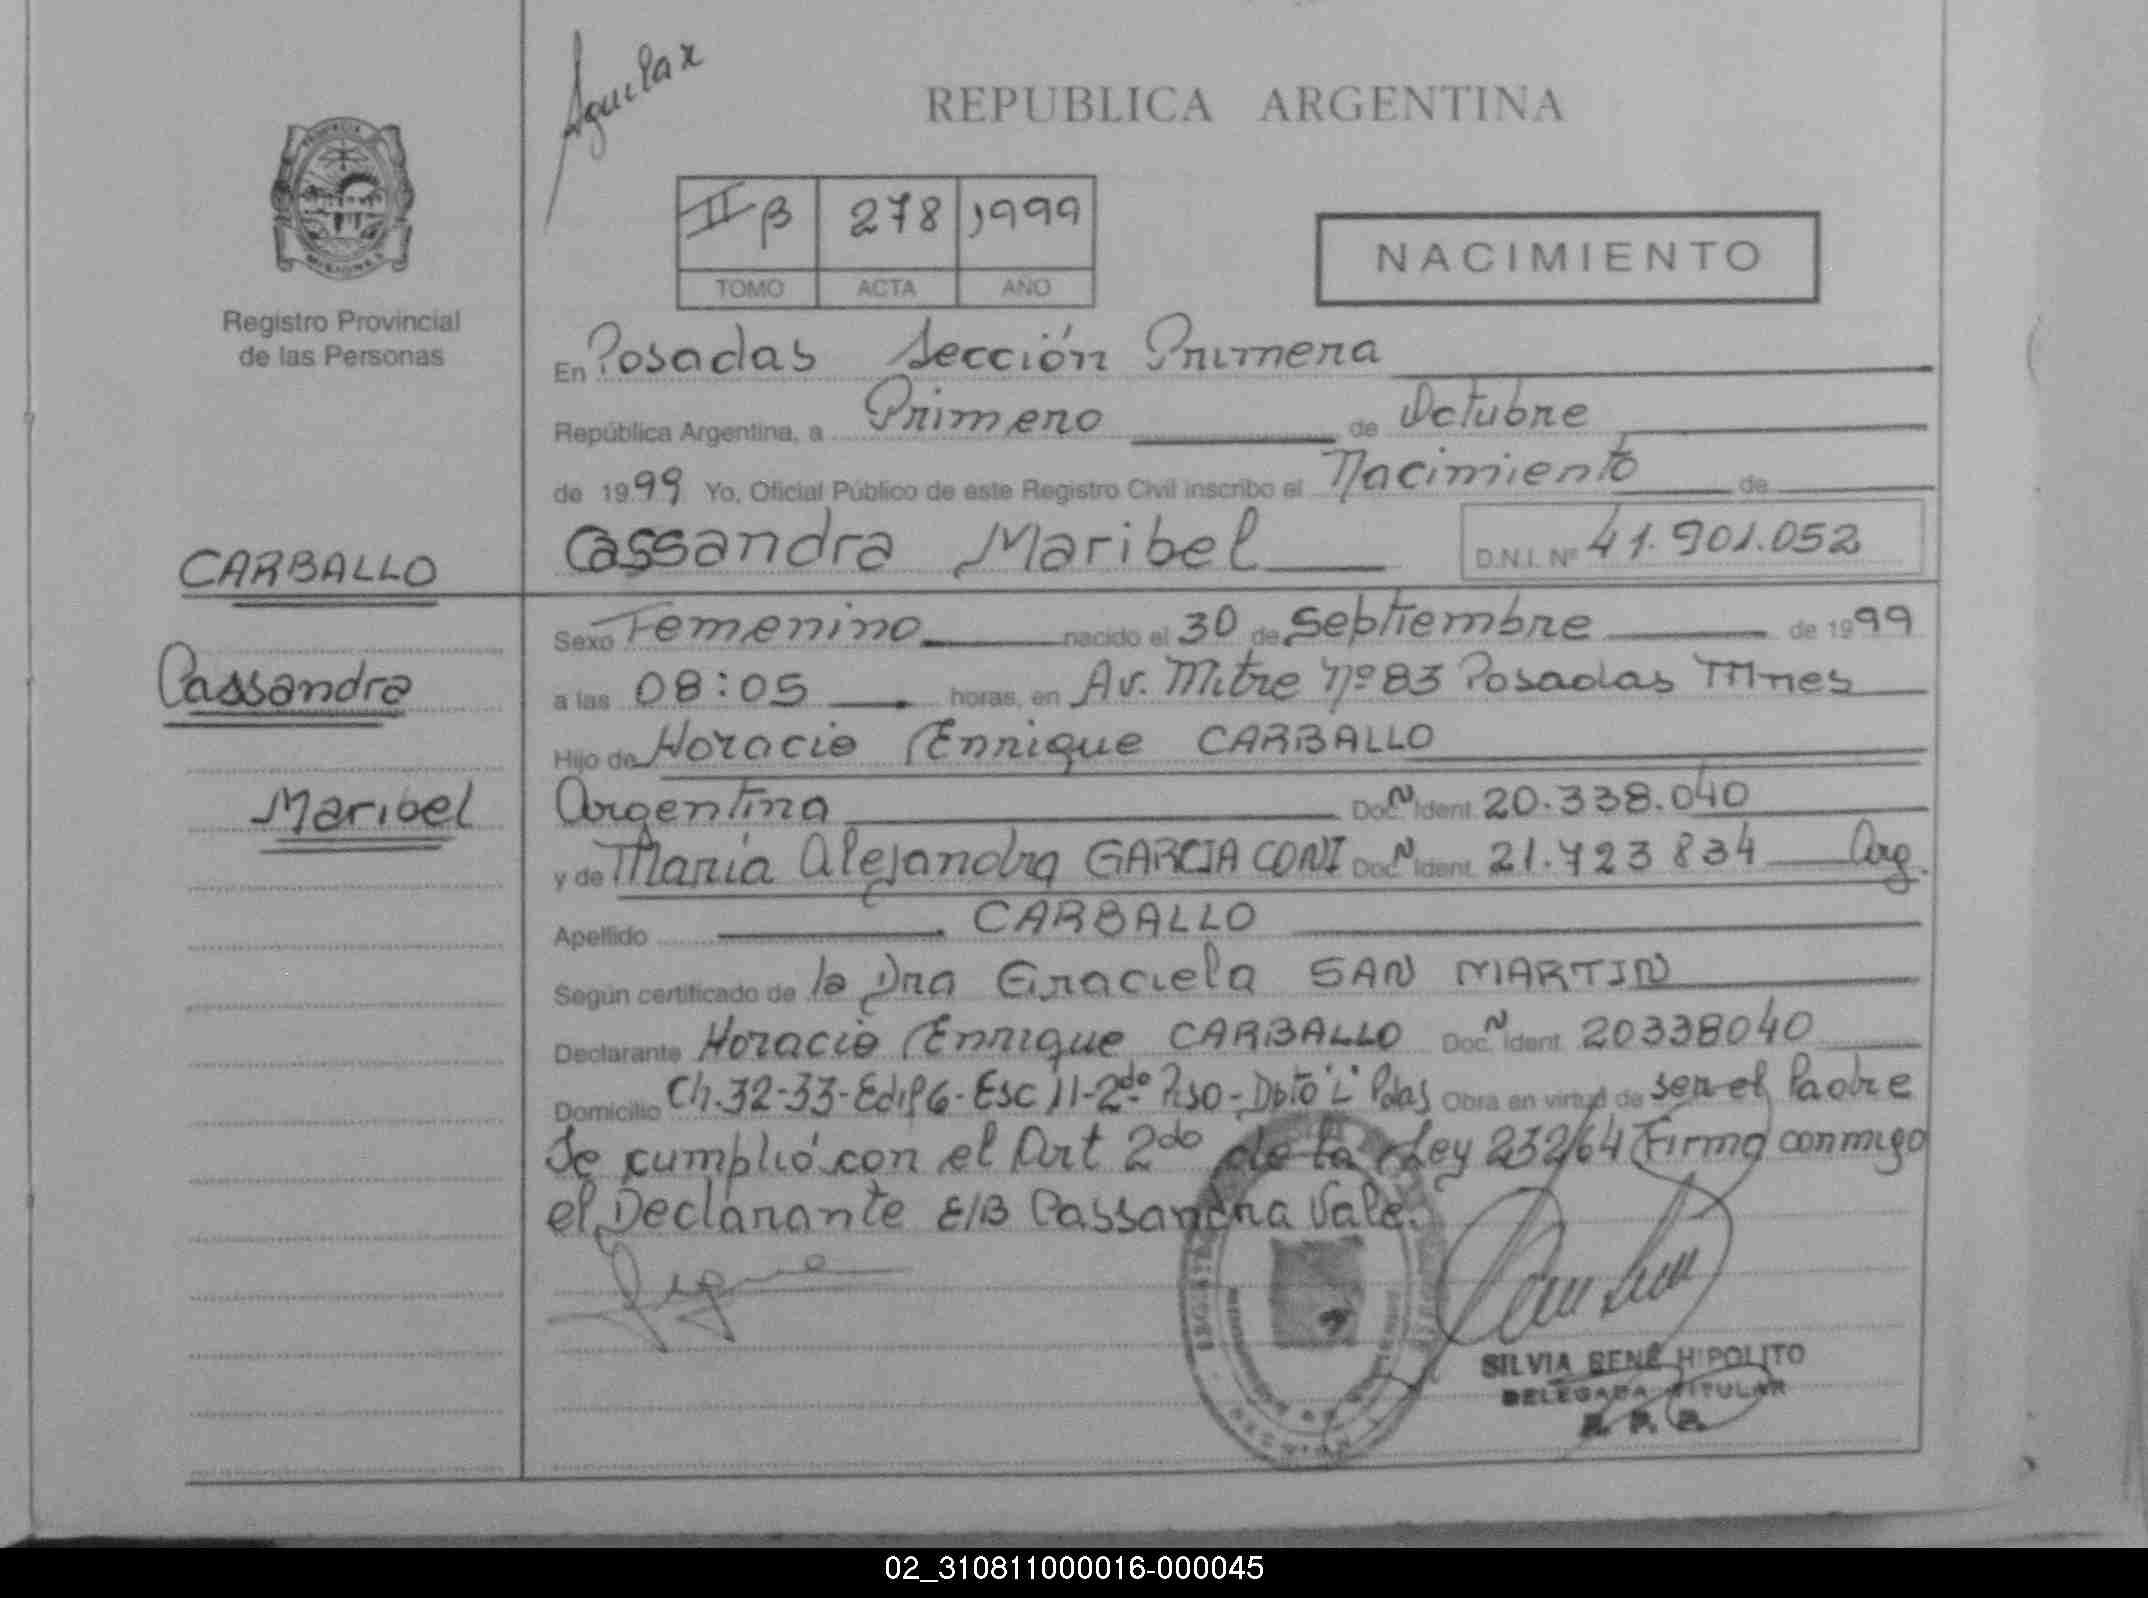 Aguilar
REPUBLICA ARGENTINA
II B 278 1999
TOMO ACTA AÑO
NACIMIENTO
Registro Provincial
de las Personas
En Posadas Sección Primera
República Argentina, a Primero de Octubre
de 1999 Yo, Oficial Público de este Registro Civil inscribo el Nacimiento de
Cassandra Maribel D.N.I. Nº 41.901.052
CARBALLO
Cassandra
Maribel
Sexo Femenino nacido el 30 de Septiembre de 1999
a las 08:05 horas, en Av. Mitre Nº 83 Posadas Mnes
Hijo de Horacio Enrique CARBALLO
Argentina Doc. N Ident. 20.338.040
y de Maria Alejandra GARCIA CONI Doc. N Ident. 21.723 834 Arg.
Apellido CARBALLO
Según certificado de la Dra Graciela SAN MARTIN
Declarante Horacio Enrique CARBALLO Doc. N Ident. 20338040
Domicilio Ch. 32-33-Edif 6-Esc 11-2do Piso-Dpto "L" Pdas Obra en virtud de ser el Padre
Se cumplió con el Art 2do de la Ley 232/64 Firma conmigo
el Declarante E/B Cassandra Vale.
SILVIA RENÉ HIPOLITO
DELEGADA TITULAR
R. P. P.
02_310811000016-000045